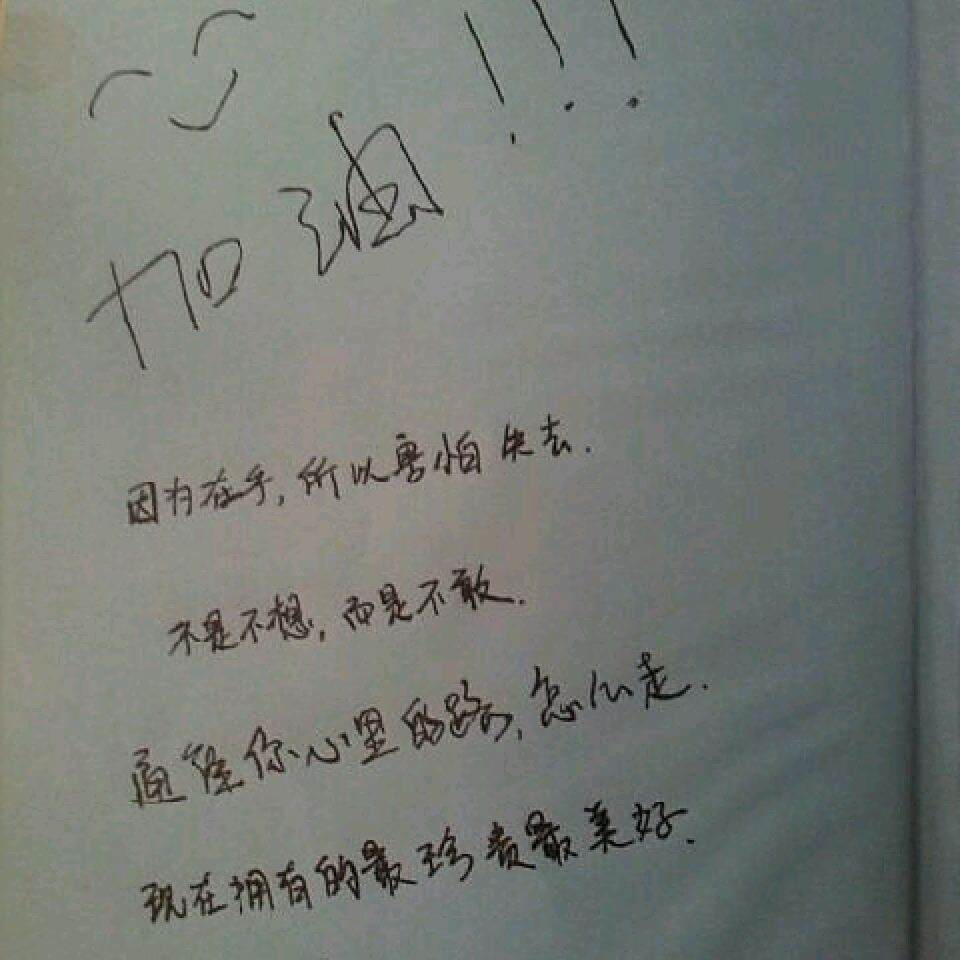 加油!!!
因为在乎,所以害怕失去.
不是不想,而是不敢.
通往你心里的路,怎么走.
现在拥有的最珍贵最美好.